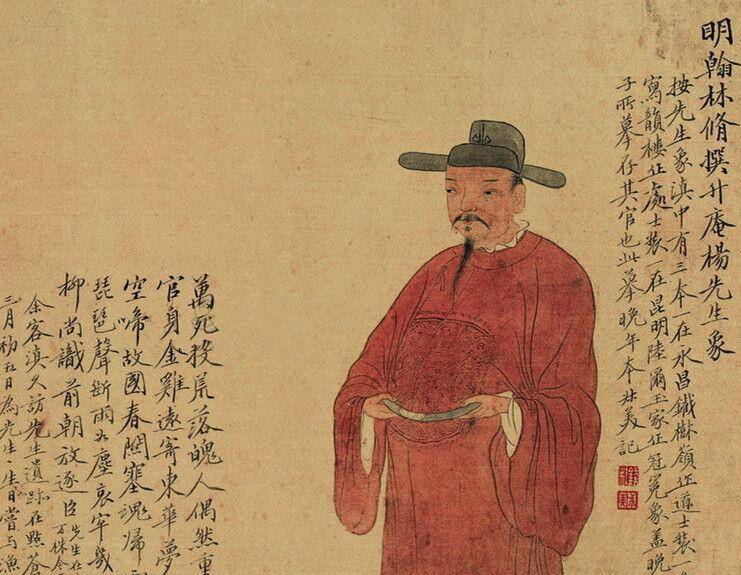 明翰林脩撰升庵楊先生象
按先生象滇中有三本一在永昌鐵樹嶺作道士裝一
寫韻樓作處士裝一在昆明陸爾玉家作冠冕象蓋晚
子所摹存其官也此摹晚年本壯美記
萬死投荒落魄人偶然重
官身金雞遠寄東華夢
空啼故國春關塞魂歸
琵琶聲斷雨如塵哀牢幾
柳尚識前朝放逐臣先生在
万株今
余客滇久訪先生遺跡在點蒼
三月初五日為先生生日嘗與漁